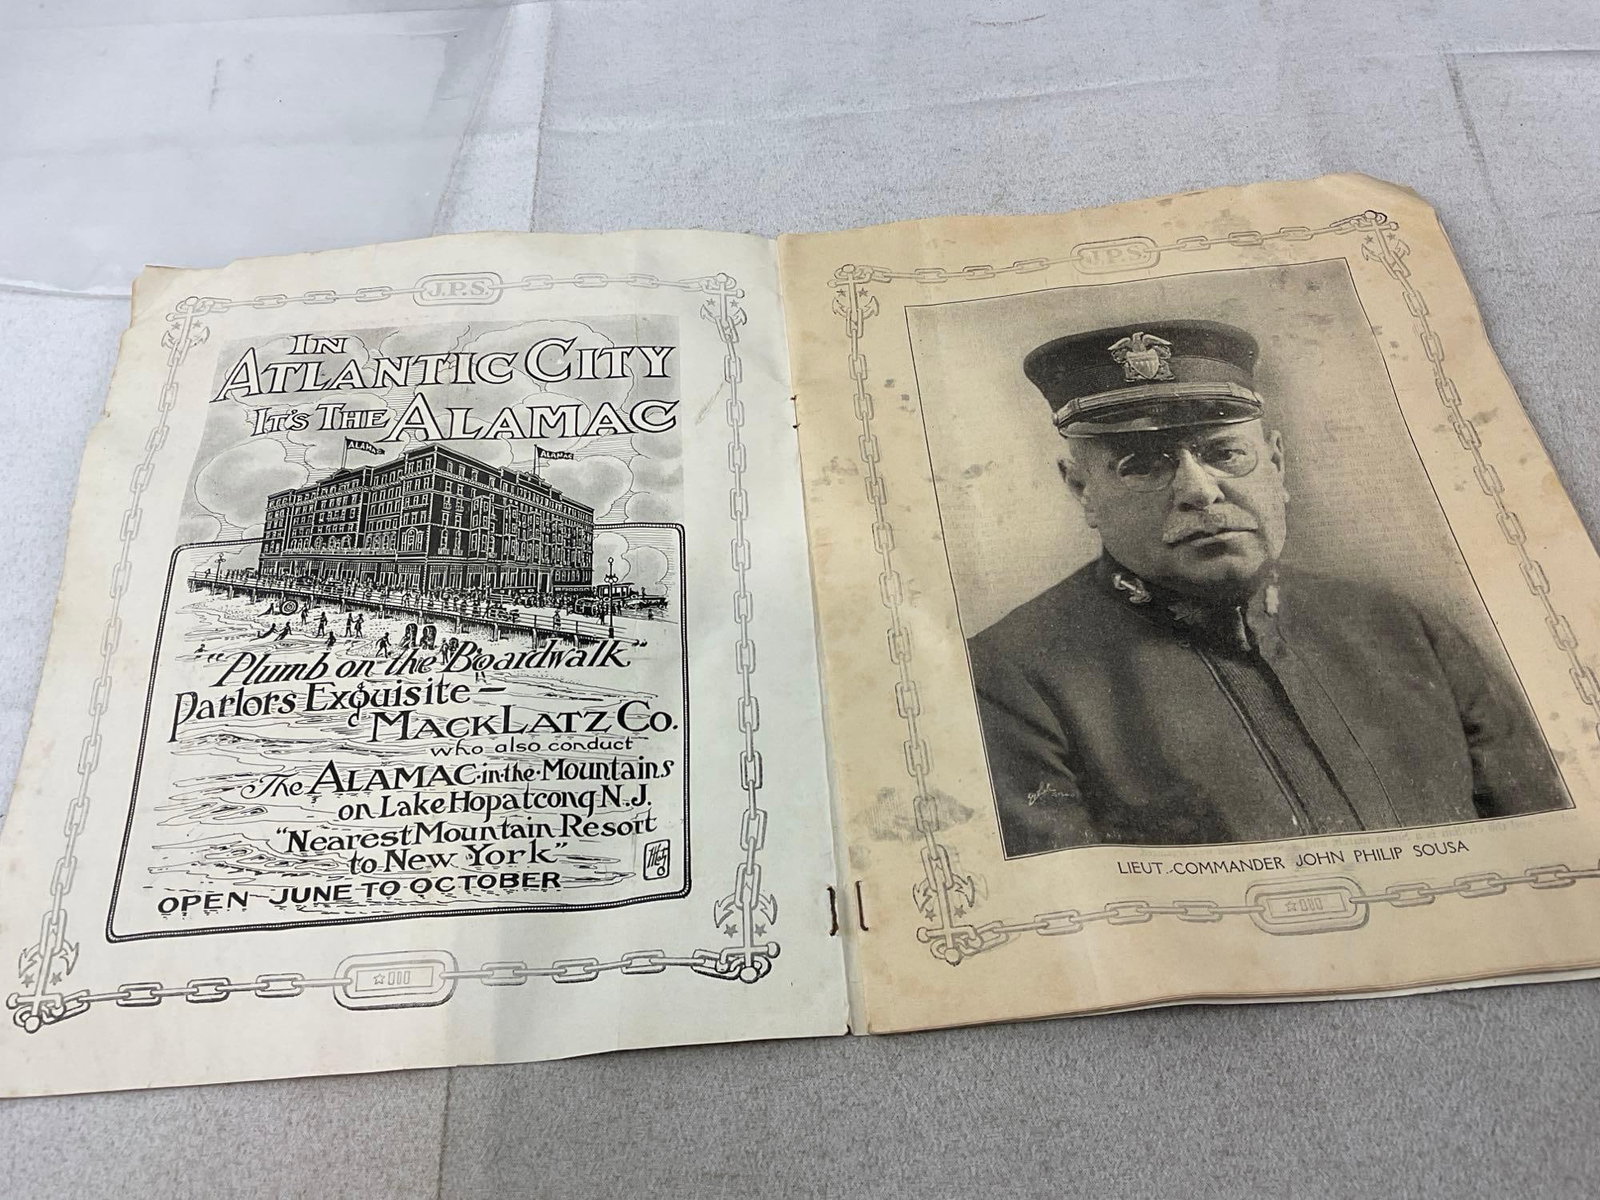 J.P.S.
IN
ATLANTIC CITY
IT'S THE ALAMAC
ALAMAC
ALAMAC
"Plumb on the Boardwalk"
Parlors Exquisite—
MACK LATZ CO.
who also conduct
The ALAMAC·in·the·Mountains
on Lake Hopatcong N.J.
"Nearest Mountain Resort
to New York"
OPEN JUNE TO OCTOBER
J.P.S.
LIEUT.-COMMANDER JOHN PHILIP SOUSA